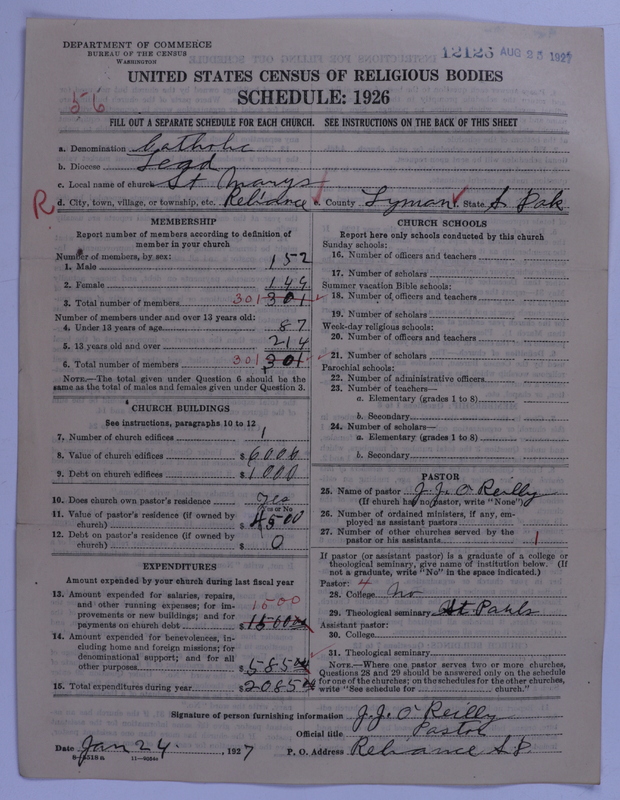 DEPARTMENT OF COMMERCE
BUREAU OF THE CENSUS
WASHINGTON
12126 AUG 23 1927
UNITED STATES CENSUS OF RELIGIOUS BODIES
SCHEDULE: 1926
56
FILL OUT A SEPARATE SCHEDULE FOR EACH CHURCH. SEE INSTRUCTIONS ON THE BACK OF THIS SHEET
a. Denomination Catholic
b. Diocese Lead
c. Local name of church St Marys
R d. City, town, village, or township, etc. Reliance e. County Lyman f. State S Dak
MEMBERSHIP
Report number of members according to definition of
member in your church
Number of members, by sex:
1. Male 152
2. Female 149
3. Total number of members 301 301
Number of members under and over 13 years old:
4. Under 13 years of age 87
5. 13 years old and over 214
6. Total number of members 301 301
NOTE.—The total given under Question 6 should be the
same as the total of males and females given under Question 3.
CHURCH BUILDINGS
See instructions, paragraphs 10 to 12
7. Number of church edifices 1
8. Value of church edifices $6000
9. Debt on church edifices $1000
10. Does church own pastor's residence yes
Yes or No
11. Value of pastor's residence (if owned by
church) $4500
12. Debt on pastor's residence (if owned by
church) $0
EXPENDITURES
Amount expended by your church during last fiscal year
13. Amount expended for salaries, repairs,
and other running expenses; for im-
provements or new buildings; and for
payments on church debt 1500 $1500.00
14. Amount expended for benevolences, in-
cluding home and foreign missions; for
denominational support; and for all
other purposes $585.00
15. Total expenditures during year $2085.00
CHURCH SCHOOLS
Report here only schools conducted by this church
Sunday schools:
16. Number of officers and teachers
17. Number of scholars
Summer vacation Bible schools:
18. Number of officers and teachers
19. Number of scholars
Week-day religious schools:
20. Number of officers and teachers
21. Number of scholars
Parochial schools:
22. Number of administrative officers
23. Number of teachers—
a. Elementary (grades 1 to 8)
b. Secondary
24. Number of scholars—
a. Elementary (grades 1 to 8)
b. Secondary
PASTOR
25. Name of pastor J. J. O'Reilly
(If church has no pastor, write "None")
26. Number of ordained ministers, if any, em-
ployed as assistant pastors
27. Number of other churches served by the
pastor or his assistants 1
If pastor (or assistant pastor) is a graduate of a college or
theological seminary, give name of institution below. (If
not a graduate, write "No" in the space indicated.)
Pastor: 4
28. College No
29. Theological seminary St Pauls
Assistant pastor:
30. College
31. Theological seminary
NOTE.—Where one pastor serves two or more churches,
Questions 28 and 29 should be answered only on the schedule
for one of the churches; on the schedules for the other churches,
write "See schedule for church."
Signature of person furnishing information J. J. O'Reilly
Official title Pastor
Date Jan 24, 1927 P. O. Address Reliance S D.